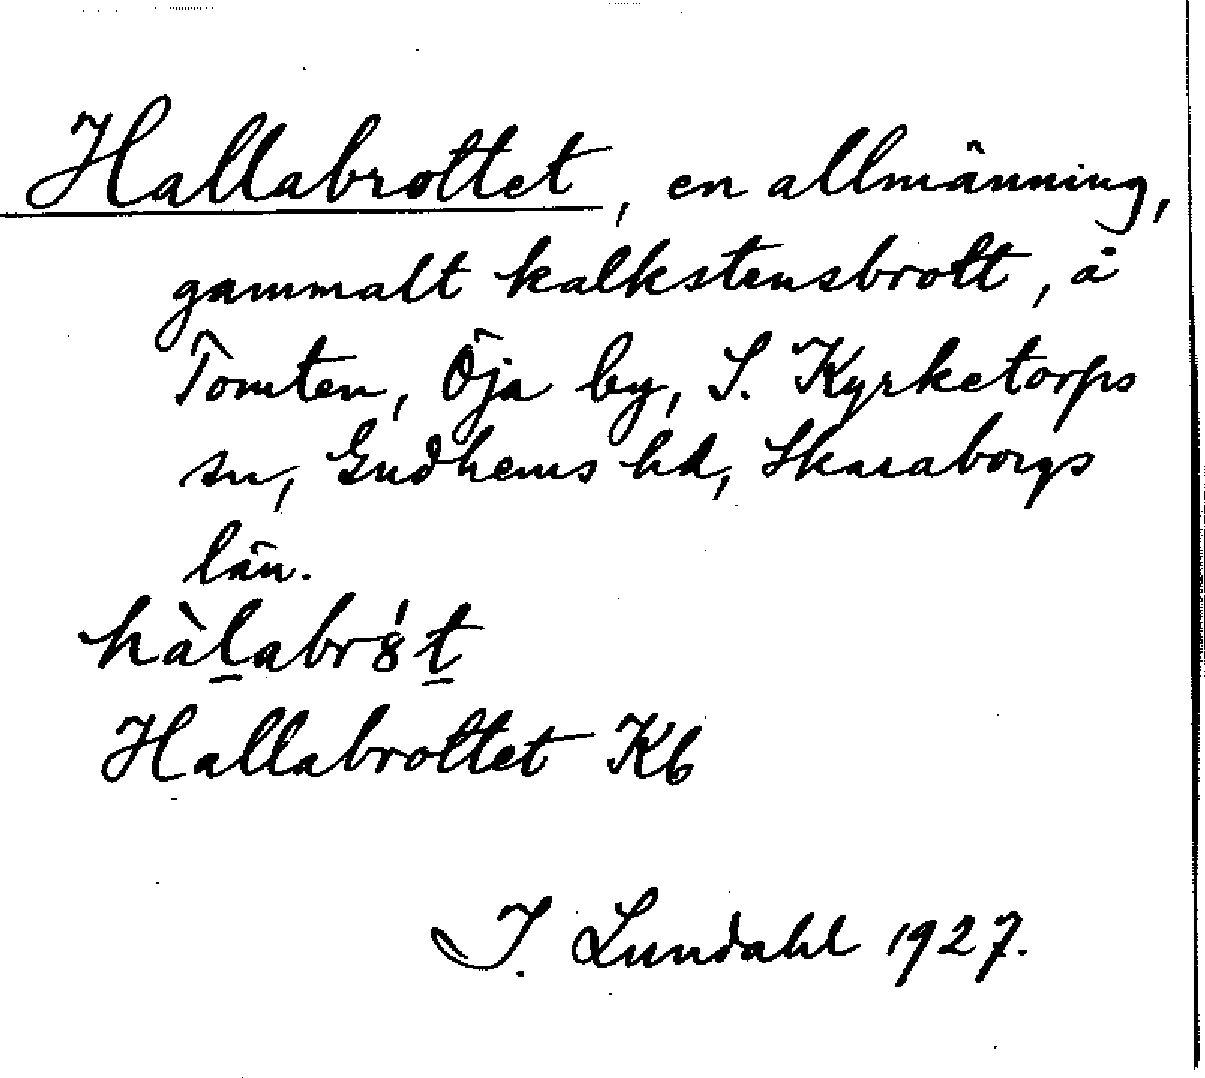 Hallabrottet, en allmänning,
gammalt kalkstensbrott, å
Tomten, Öja by, S. Kyrketorps
sn, Gudhems hd, Skaraborgs
län.
hàl̠abr8́t̠
Hallabrottet Kb
I. Lundahl 1927.